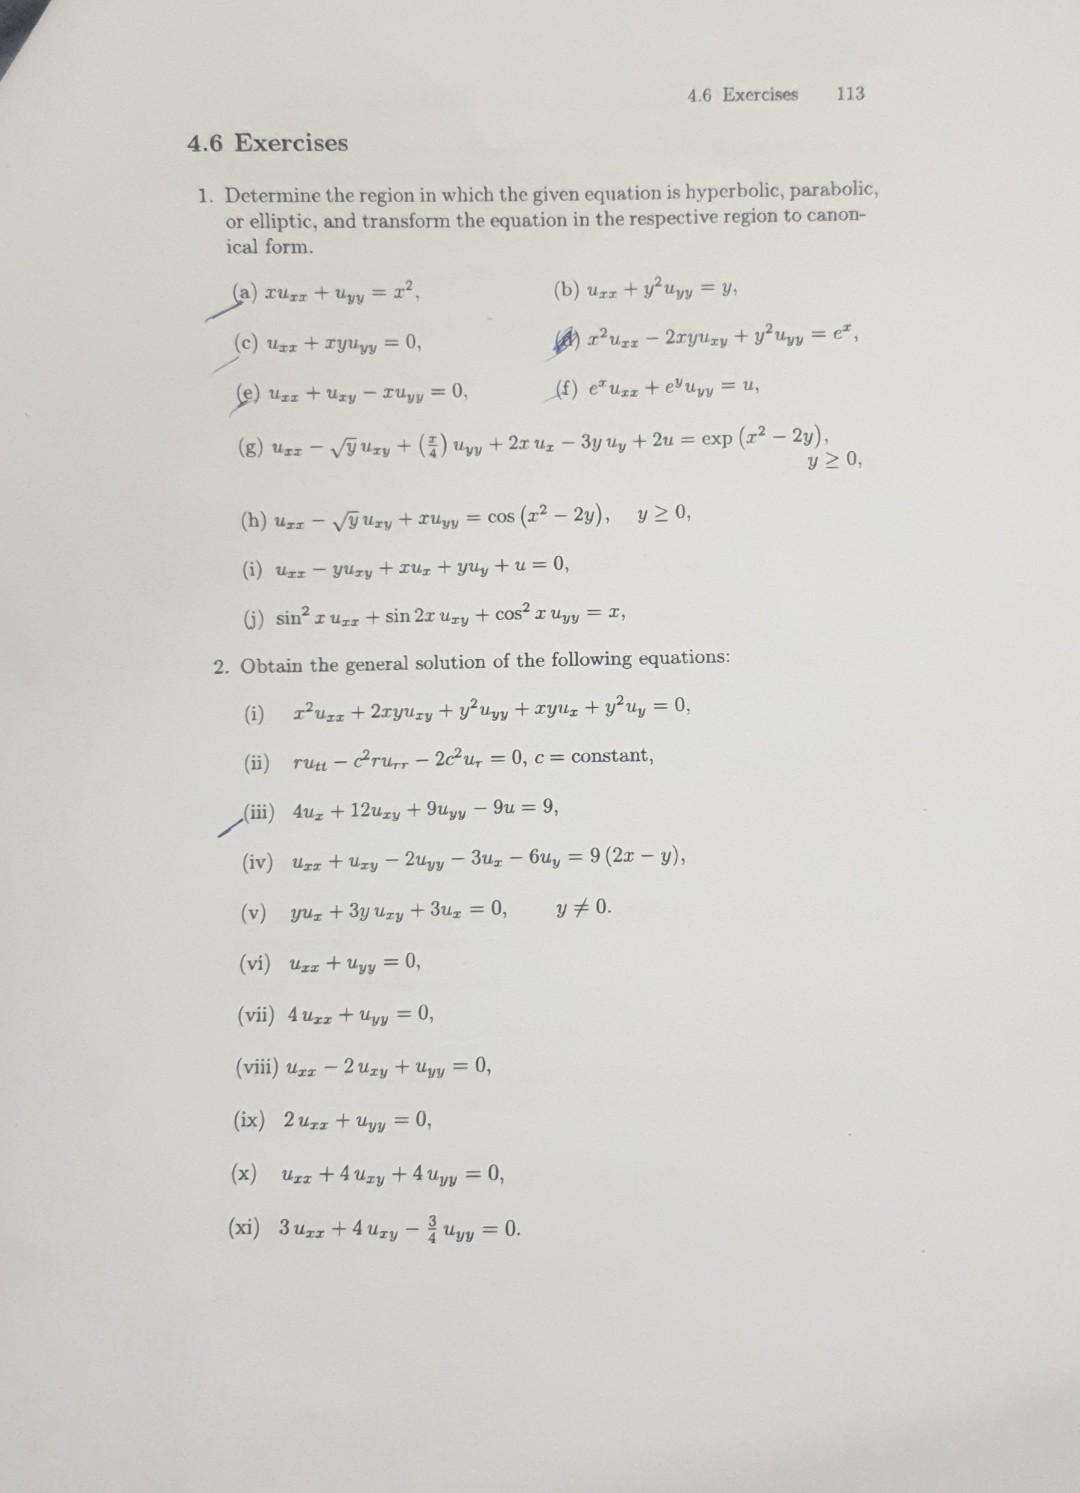 4.6 Exercises 113
4.6 Exercises
1. Determine the region in which the given equation is hyperbolic, parabolic,
or elliptic, and transform the equation in the respective region to canon-
ical form.
(a) xuₓₓ + u_yy = x², (b) uₓₓ + y²u_yy = y,
(c) uₓₓ + xyu_yy = 0, (d) x²uₓₓ − 2xyu_xy + y²u_yy = eˣ,
(e) uₓₓ + u_xy − xu_yy = 0, (f) eˣuₓₓ + e^y u_yy = u,
(g) uₓₓ − √y u_xy + (x/4) u_yy + 2x uₓ − 3y u_y + 2u = exp (x² − 2y),
y ≥ 0,
(h) uₓₓ − √y u_xy + xu_yy = cos (x² − 2y), y ≥ 0,
(i) uₓₓ − yu_xy + xuₓ + yu_y + u = 0,
(j) sin² x uₓₓ + sin 2x u_xy + cos² x u_yy = x,
2. Obtain the general solution of the following equations:
(i) x²uₓₓ + 2xyu_xy + y²u_yy + xyuₓ + y²u_y = 0,
(ii) ru_tt − c²ru_rr − 2c²u_r = 0, c = constant,
(iii) 4uₓ + 12u_xy + 9u_yy − 9u = 9,
(iv) uₓₓ + u_xy − 2u_yy − 3uₓ − 6u_y = 9 (2x − y),
(v) yuₓ + 3y u_xy + 3uₓ = 0, y ≠ 0.
(vi) uₓₓ + u_yy = 0,
(vii) 4 uₓₓ + u_yy = 0,
(viii) uₓₓ − 2 u_xy + u_yy = 0,
(ix) 2 uₓₓ + u_yy = 0,
(x) uₓₓ + 4 u_xy + 4 u_yy = 0,
(xi) 3 uₓₓ + 4 u_xy − 3/4 u_yy = 0.